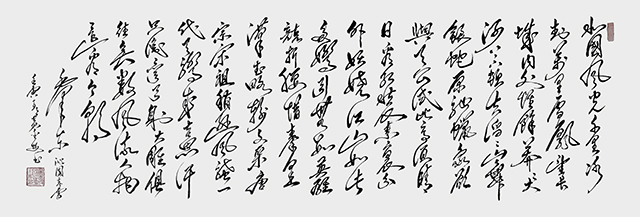 北國風光千里冰
封萬里雪飄望長
城內外惟餘莽莽大
河上下頓失滔滔山舞
銀蛇原馳蠟象欲
與天公試比高須晴
日看紅妝素裹分
外妖嬈江山如此
多嬌引無數英雄
競折腰惜秦皇
漢武略輸文采唐
宗宋祖稍遜風騷一
代天驕成吉思汗
只識彎弓射大雕俱
往矣數風流人物
還看今朝
毛澤東 沁園春雪